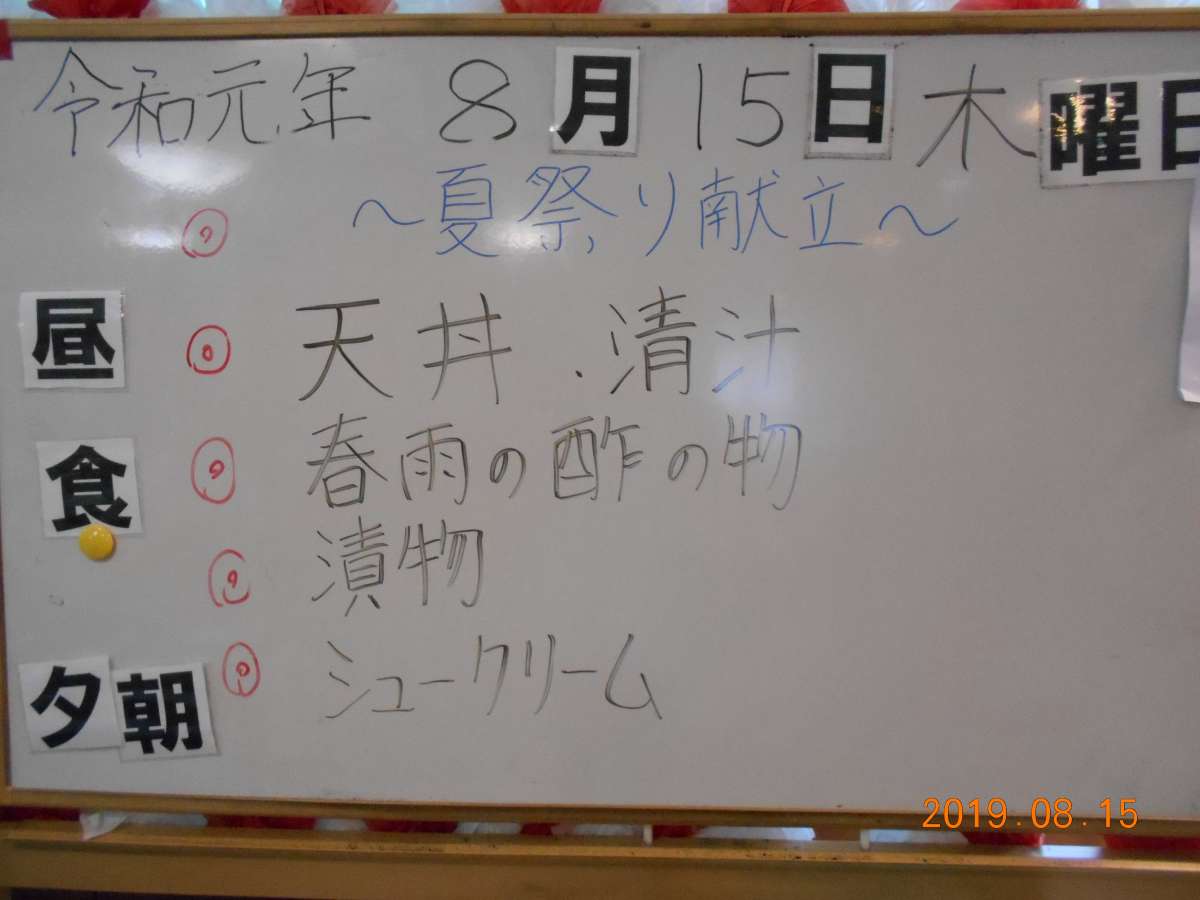 令和元年 8月15日木曜日
～夏祭り献立～
昼食
天丼・清汁
春雨の酢の物
漬物
シュークリーム
夕朝
2019.08.15